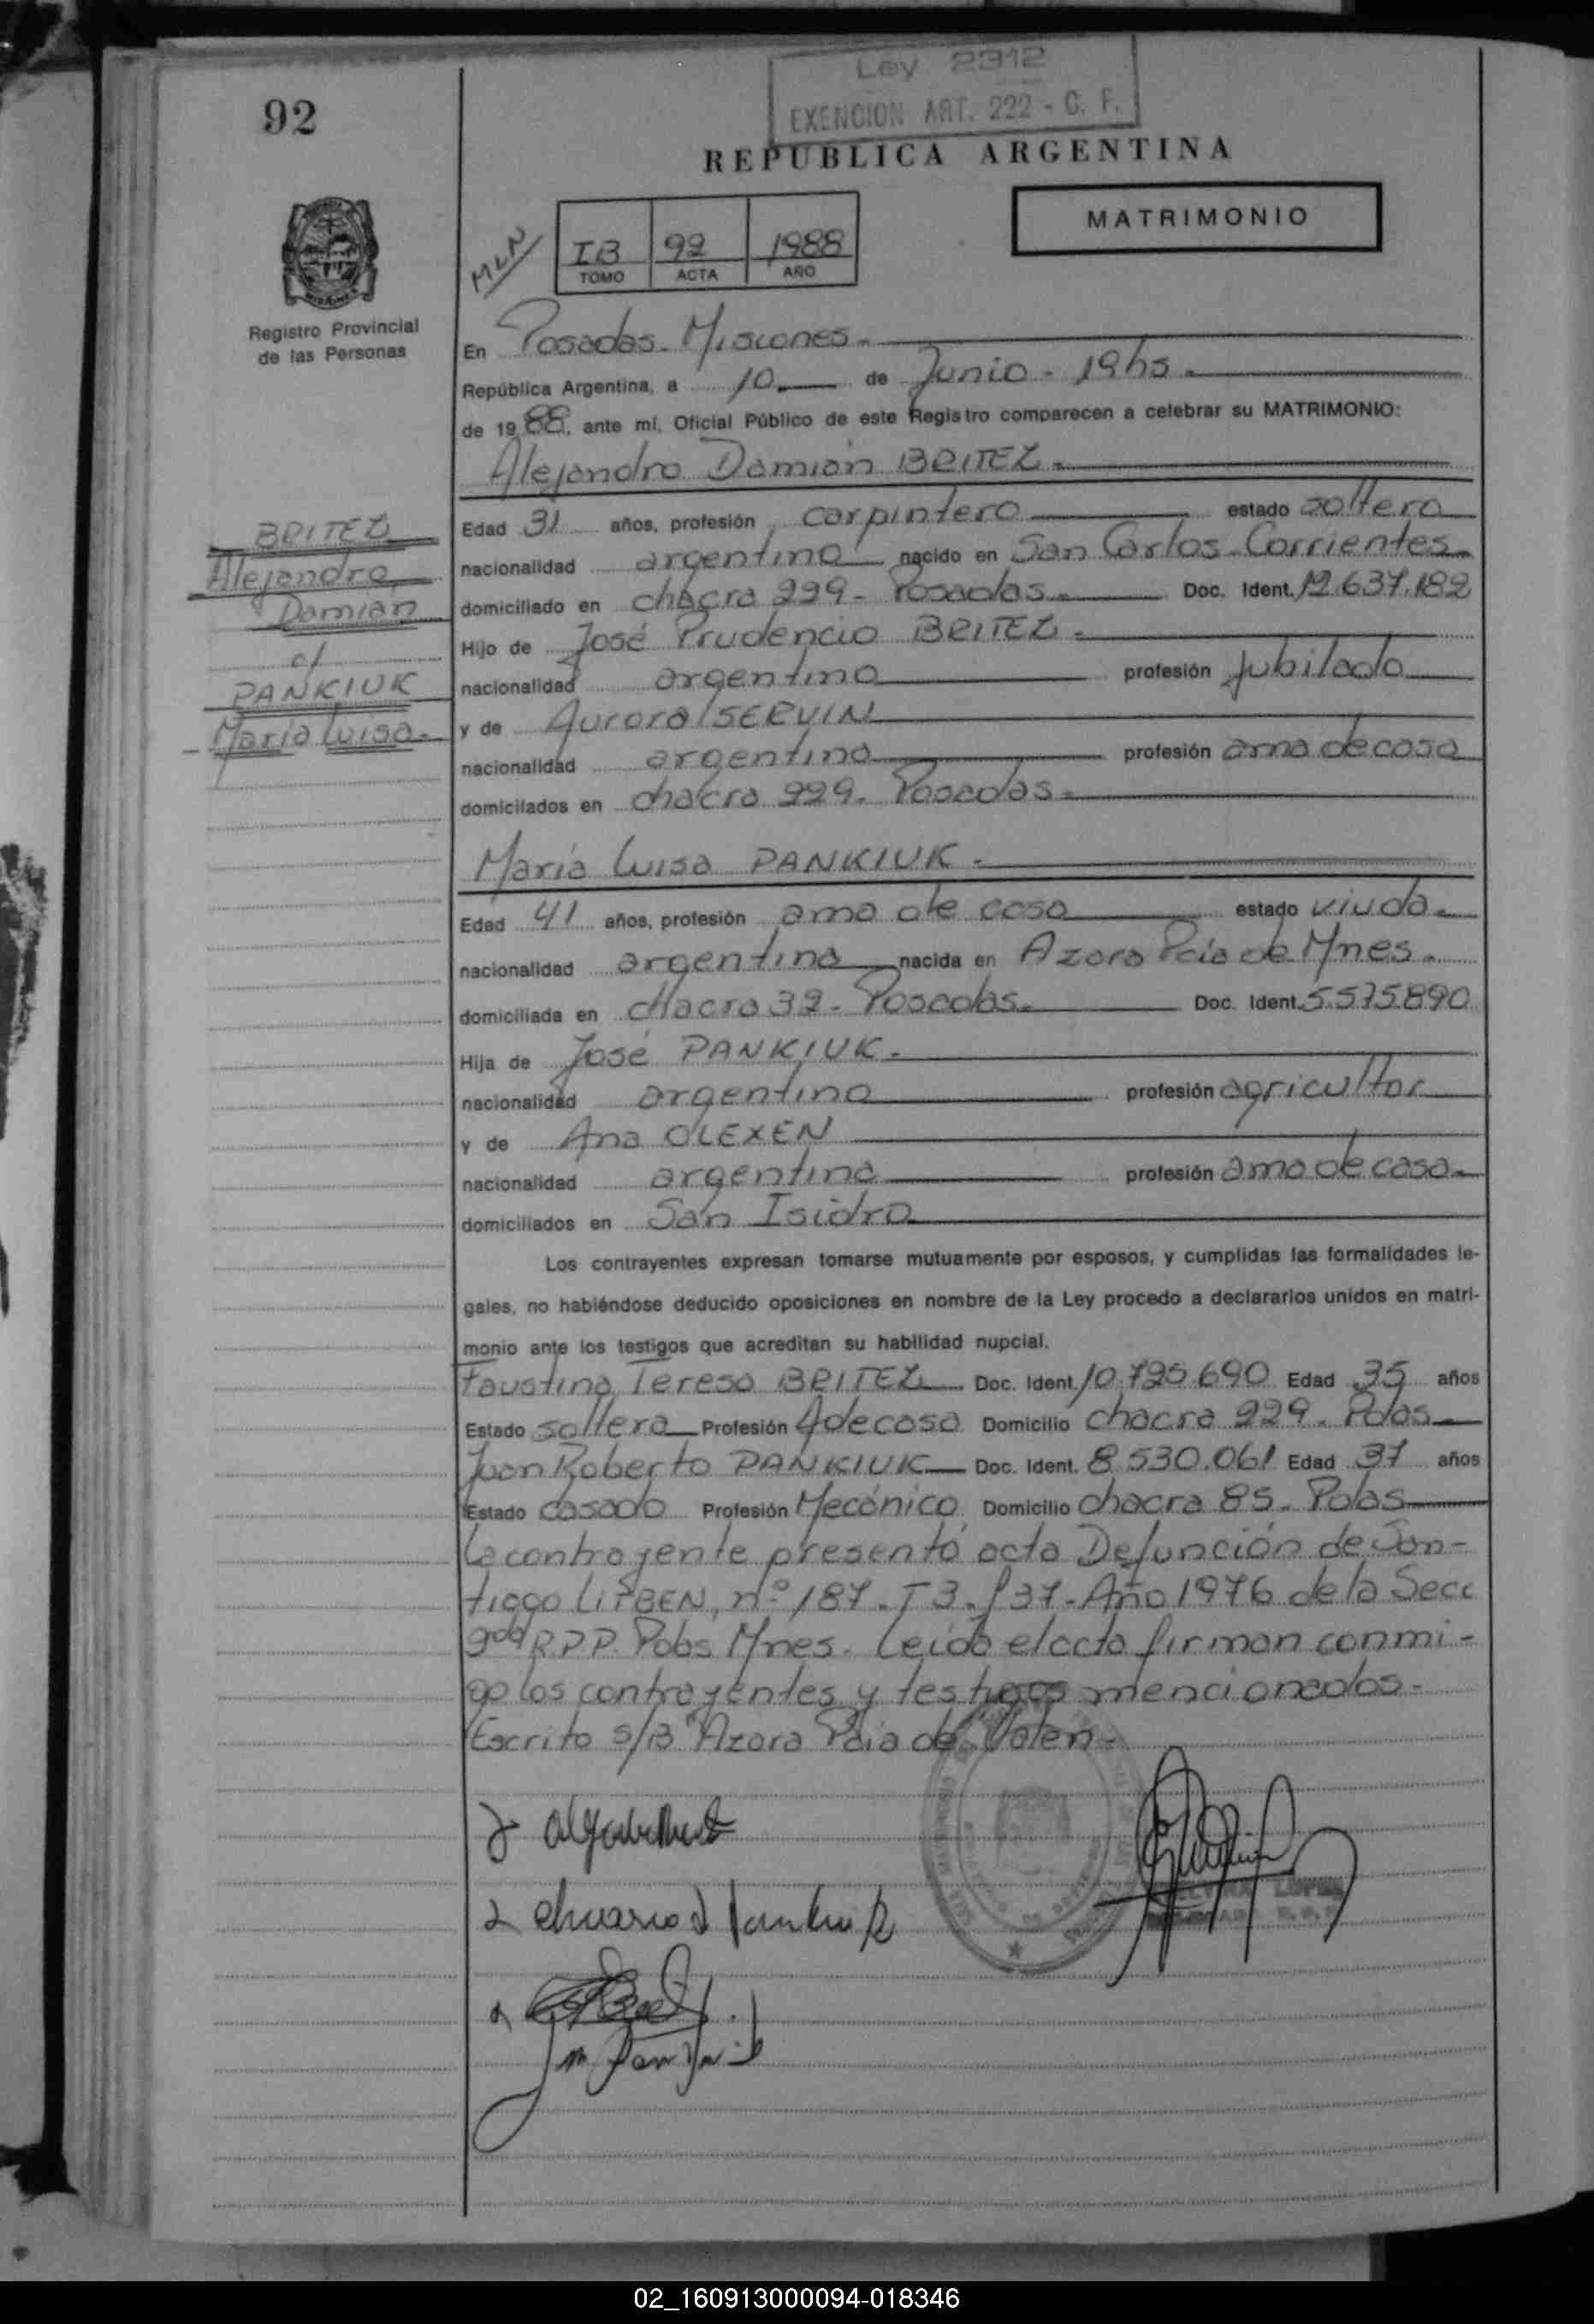 Ley 2312
EXENCION ART. 222 - C. F.
92
REPUBLICA ARGENTINA
MATRIMONIO
MLN
IB 92 1988
TOMO ACTA AÑO
Registro Provincial
de las Personas
En Posadas - Misiones -
República Argentina, a 10 de Junio - 19hs -
de 1988, ante mí, Oficial Público de este Registro comparecen a celebrar su MATRIMONIO:
Alejandro Damián BRITEZ -
BRITEZ
Alejandro
Damian
c/
PANKIUK
María Luisa -
Edad 31 años, profesión carpintero estado soltero
nacionalidad argentino nacido en San Carlos - Corrientes
domiciliado en chacra 229 - Posadas - Doc. Ident. 12.637.182
Hijo de José Prudencio BRITEZ -
nacionalidad argentino profesión jubilado
y de Aurora SERVIN
nacionalidad argentina profesión ama de casa
domicilados en chacra 229 - Posadas -
María Luisa PANKIUK -
Edad 41 años, profesión ama de casa estado viuda -
nacionalidad argentina nacida en Azara Pcia de Mnes -
domiciliada en chacra 32 - Posadas - Doc. Ident. 5.575.890
Hija de José PANKIUK -
nacionalidad argentino profesión agricultor
y de Ana OLEXEN
nacionalidad argentina profesión ama de casa -
domiciliados en San Isidro
Los contrayentes expresan tomarse mutuamente por esposos, y cumplidas las formalidades le-
gales, no habiéndose deducido oposiciones en nombre de la Ley procedo a declararlos unidos en matri-
monio ante los testigos que acreditan su habilidad nupcial.
Faustina Teresa BRITEZ Doc. Ident. 10.725.690 Edad 35 años
Estado soltera Profesión Adecasa Domicilio chacra 229 - Pdas
Juan Roberto PANKIUK Doc. Ident. 8.530.061 Edad 37 años
Estado casado Profesión Mecánico Domicilio chacra 85 - Pdas
La contrayente presentó acta Defunción de San-
tiago LITBEN, nº 187 - T 3 - f 37 - Año 1976 de la Secc
2da R.P.P. Pdas Mnes - Leída el acta firman conmi-
go los contrayentes y testigos mencionados -
Escrito s/B "Azara Pcia de" Valen -
02_160913000094-018346